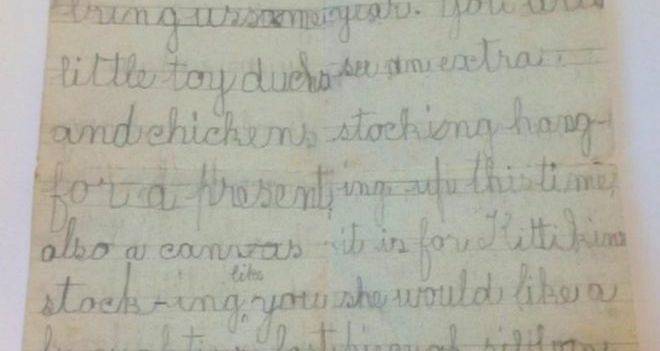 bring us some
little toy ducks
and chickens
for a present,
also a canvas
stock-ing, like you
last
year. You
see an extra
stocking hang-
ing up this time,
it is for Kittikins
she would like a